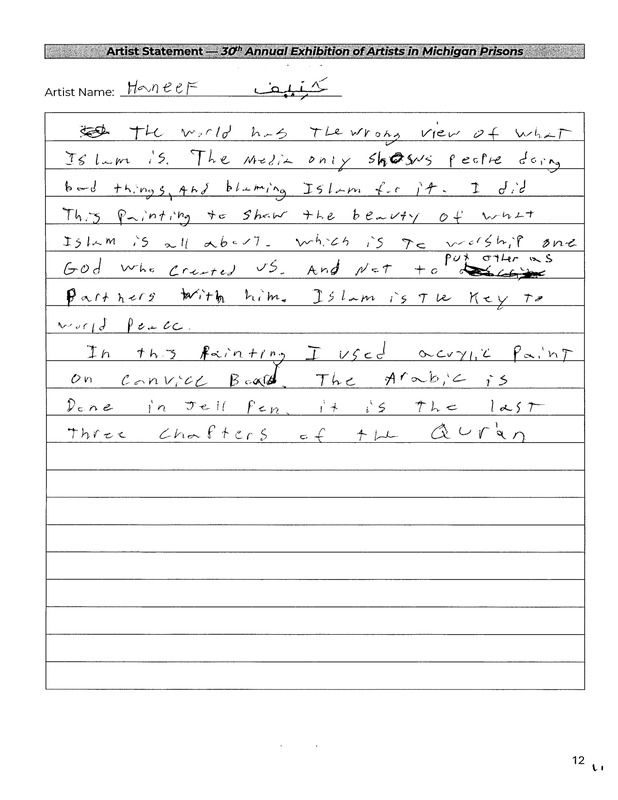 Artist Statement — 30th Annual Exhibition of Artists in Michigan Prisons
Artist Name: Haneef حنيف
The world has the wrong view of what
Islam is. The Media only shows people doing
bad things, And blaming Islam for it. I did
This Painting to show the beauty of what
Islam is all about. which is To worship one
God who created us. And Not to put other as
Partners With him. Islam is The Key To
world Peace.
In this Painting I used acrylic Paint
on canvice Board. The Arabic is
Done in Jell Pen. it is the last
Three Chapters of the Qur'an
12